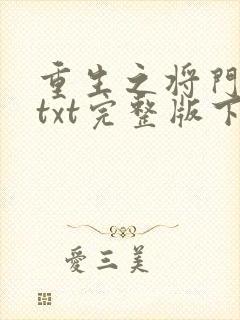 重生之将門
txt完整版下
愛三美